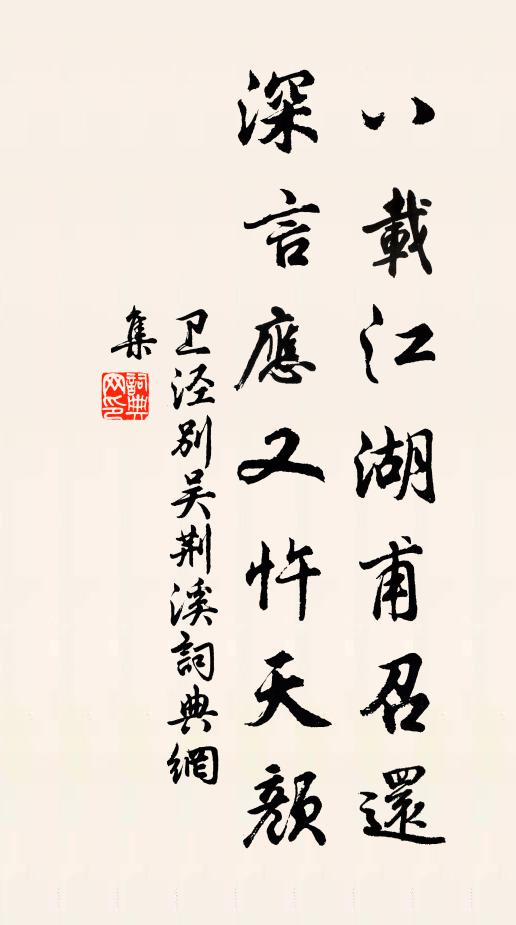 八載江湖甫召還
深言應又忤天顏
卫泾别吴荆溪詞典網
集
詞典网印